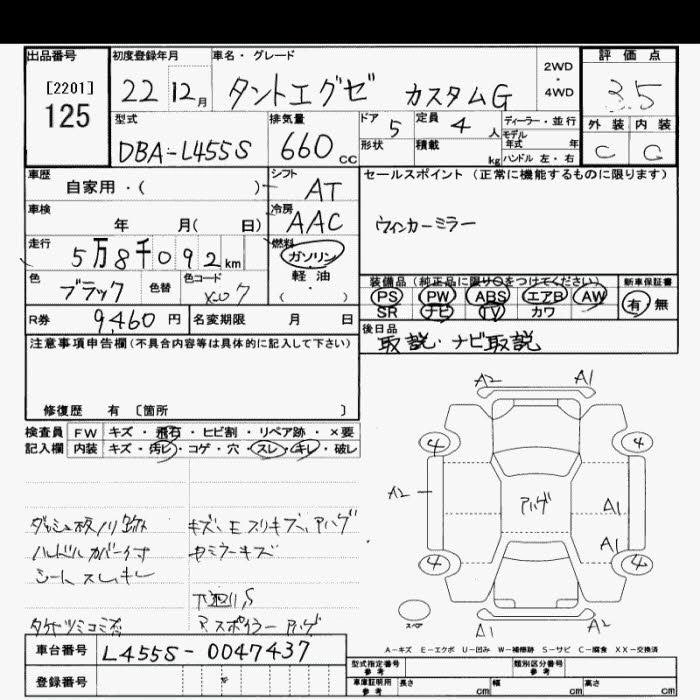 出品番号
[2201]
125
初度登録年月
22 12月
車名・グレード
タントエグゼ カスタムG
2WD
・
4WD
評価点
3.5
外装 内装
C C
型式
DBA-L455S
排気量
660 CC
ドア 5
定員 4 人
形状
積載 kg
ディーラー・並行
モデル
年式 年
ハンドル 左・右
車歴
自家用・( )
シフト
AT
セールスポイント (正常に機能するものに限ります)
ウィンカーミラー
車検
年 月( 日)
冷房
AAC
走行
5万8千092km
燃料
ガソリン
軽油
( ・ )
色
ブラック
色替
色コード
X07
装備品(純正品に限り○をつけてください)
PS PW ABS エアB AW
SR ナビ TV カワ
新車保証書
有 無
R券 9,460円
名変期限 月 日
後日品
取説・ナビ取説
注意事項申告欄(不具合内容等は具体的に記入して下さい)
修復歴 有 [箇所 ]
検査員
記入欄
FW キズ・飛石・ヒビ割・リペア跡・×要
内装 キズ・汚レ・コゲ・穴・スレ・キレ・破レ
ハンドルカバー付
シートスレ、キレ
キズ、エスリキズ、ハゲ
下廻りS
Rスポイラーハゲ
A2 A1
4 4
A2
ハゲ
A1
A1
4 4
スペア
A1 A2
A-キズ E-エクボ U-凹み W-補修跡 S-サビ C-腐食 XX-交換済
車台番号
L455S-0047437
登録番号
型式指定番号
参考
類別区分番号
参考
車庫証明用
参考
長さ cm
幅 cm
高さ cm